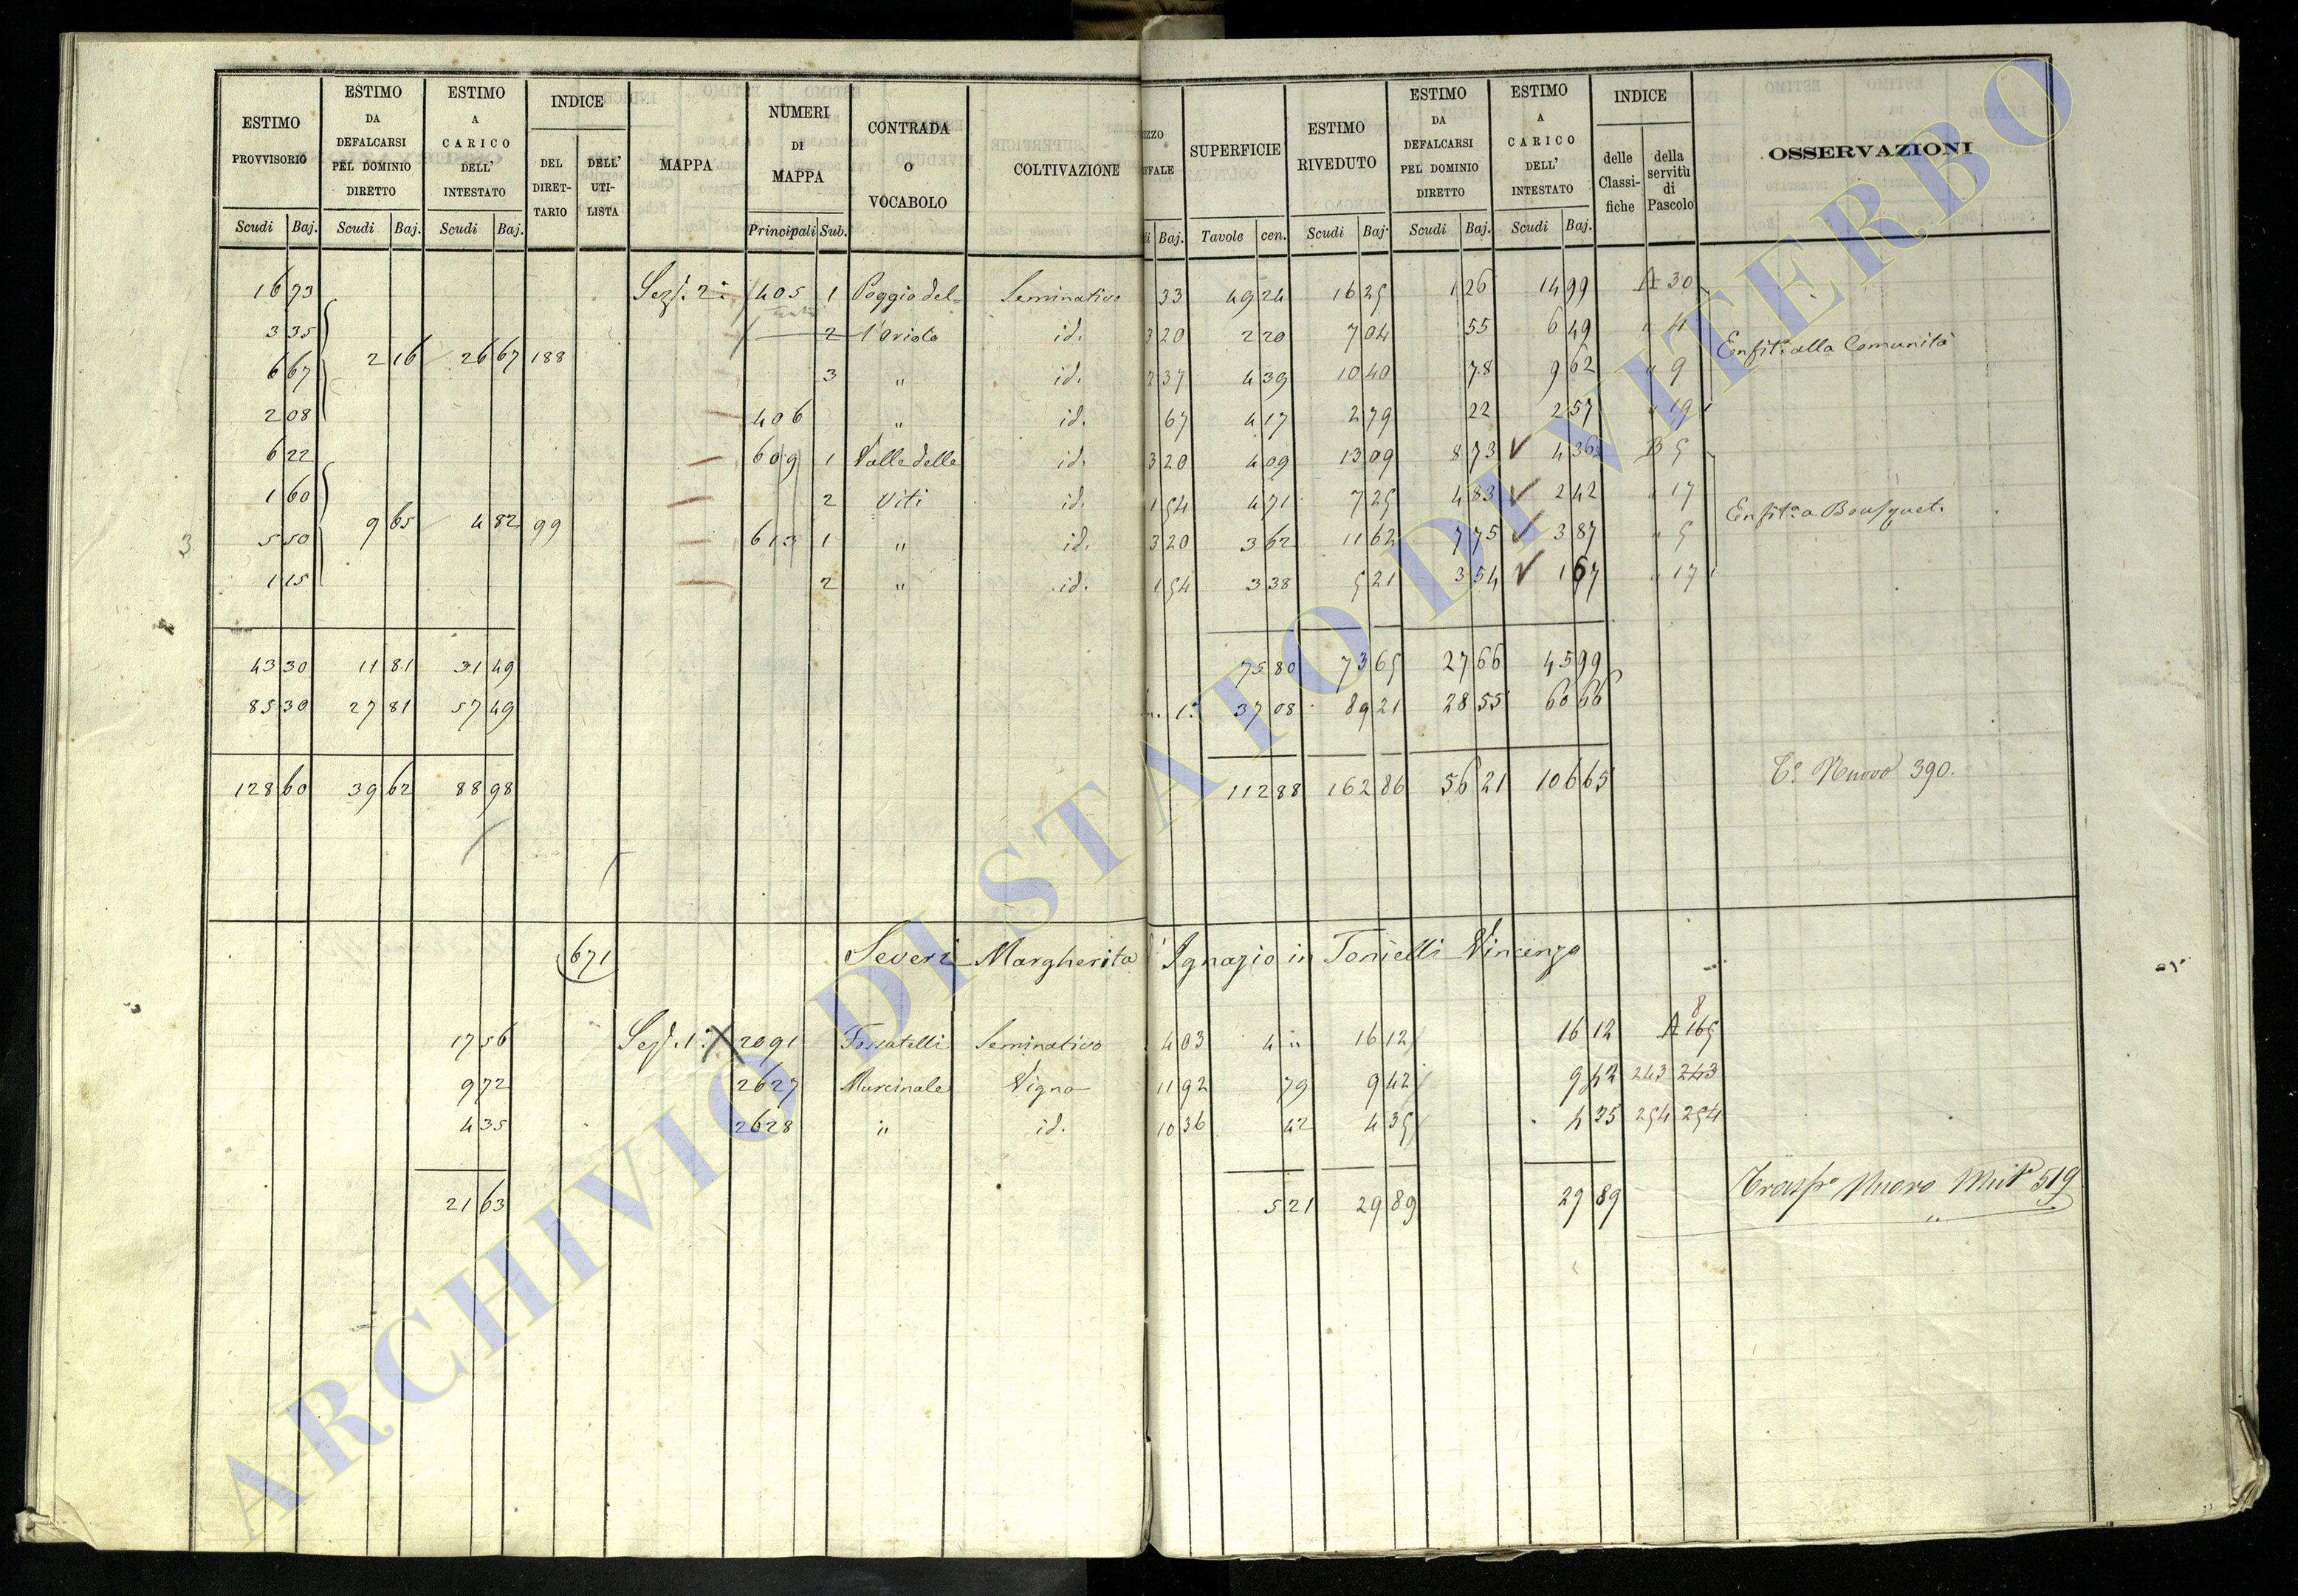 ESTIMO PROVVISORIO | ESTIMO DA DEFALCARSI PEL DOMINIO DIRETTO | ESTIMO A CARICO DELL' INTESTATO | INDICE | MAPPA | NUMERI DI MAPPA | CONTRADA O VOCABOLO | COLTIVAZIONE | EZZO FFALE | SUPERFICIE | ESTIMO RIVEDUTO | ESTIMO DA DEFALCARSI PEL DOMINIO DIRETTO | ESTIMO A CARICO DELL' INTESTATO | INDICE | OSSERVAZIONI
DEL DIRET-TARIO | DELL' UTI-LISTA | delle Classi-fiche | della servitù di Pascolo
Scudi Baj. Scudi Baj. Scudi Baj. Principali Sub. Baj. Tavole cen. Scudi Baj. Scudi Baj. Scudi Baj.
16 73 Sez. 2ª 405 1 Poggio del- Seminativo 33 49 24 16 25 1 26 14 99 A 30
3 35 2 l'Oriolo id. 3 20 2 20 7 04 55 6 49 " 4
2 16 26 67 188 Enfit. alla Comunità
6 67 3 " id. 2 37 4 39 10 40 78 9 62 " 9
2 08 406 " id. 67 4 17 2 79 22 2 57 " 19
6 22 609 1 Valle delle id. 3 20 4 09 13 09 8 73 4 36 B 5
1 60 2 Viti id. 1 54 4 71 7 25 4 83 2 42 " 17
9 65 4 82 99 Enfit. a Bousquet.
5 50 613 1 " id. 3 20 3 62 11 62 7 75 3 87 " 5
1 15 2 " id. 1 54 3 38 5 21 3 54 1 67 " 17
43 30 11 81 31 49 75 80 73 65 27 66 45 99
85 30 27 81 57 49 1ª 37 08 89 21 28 55 60 66
128 60 39 62 88 98 112 88 162 86 56 21 106 65 Tº Nuovo 390.
671 Severi Margherita d'Ignazio in Tonielli Vincenzo
8
17 56 Sez. 1ª 2091 Fossatelli Seminativo 4 03 4 " 16 12 16 12 A 165
9 72 2627 Murcinale Vigna 11 92 79 9 42 9 42 243 243
4 35 2628 " id. 10 36 42 4 35 4 35 254 254
21 63 5 21 29 89 29 89 Trasp. Nuovo Mut. 519
3
ARCHIVIO DI STATO DI VITERBO